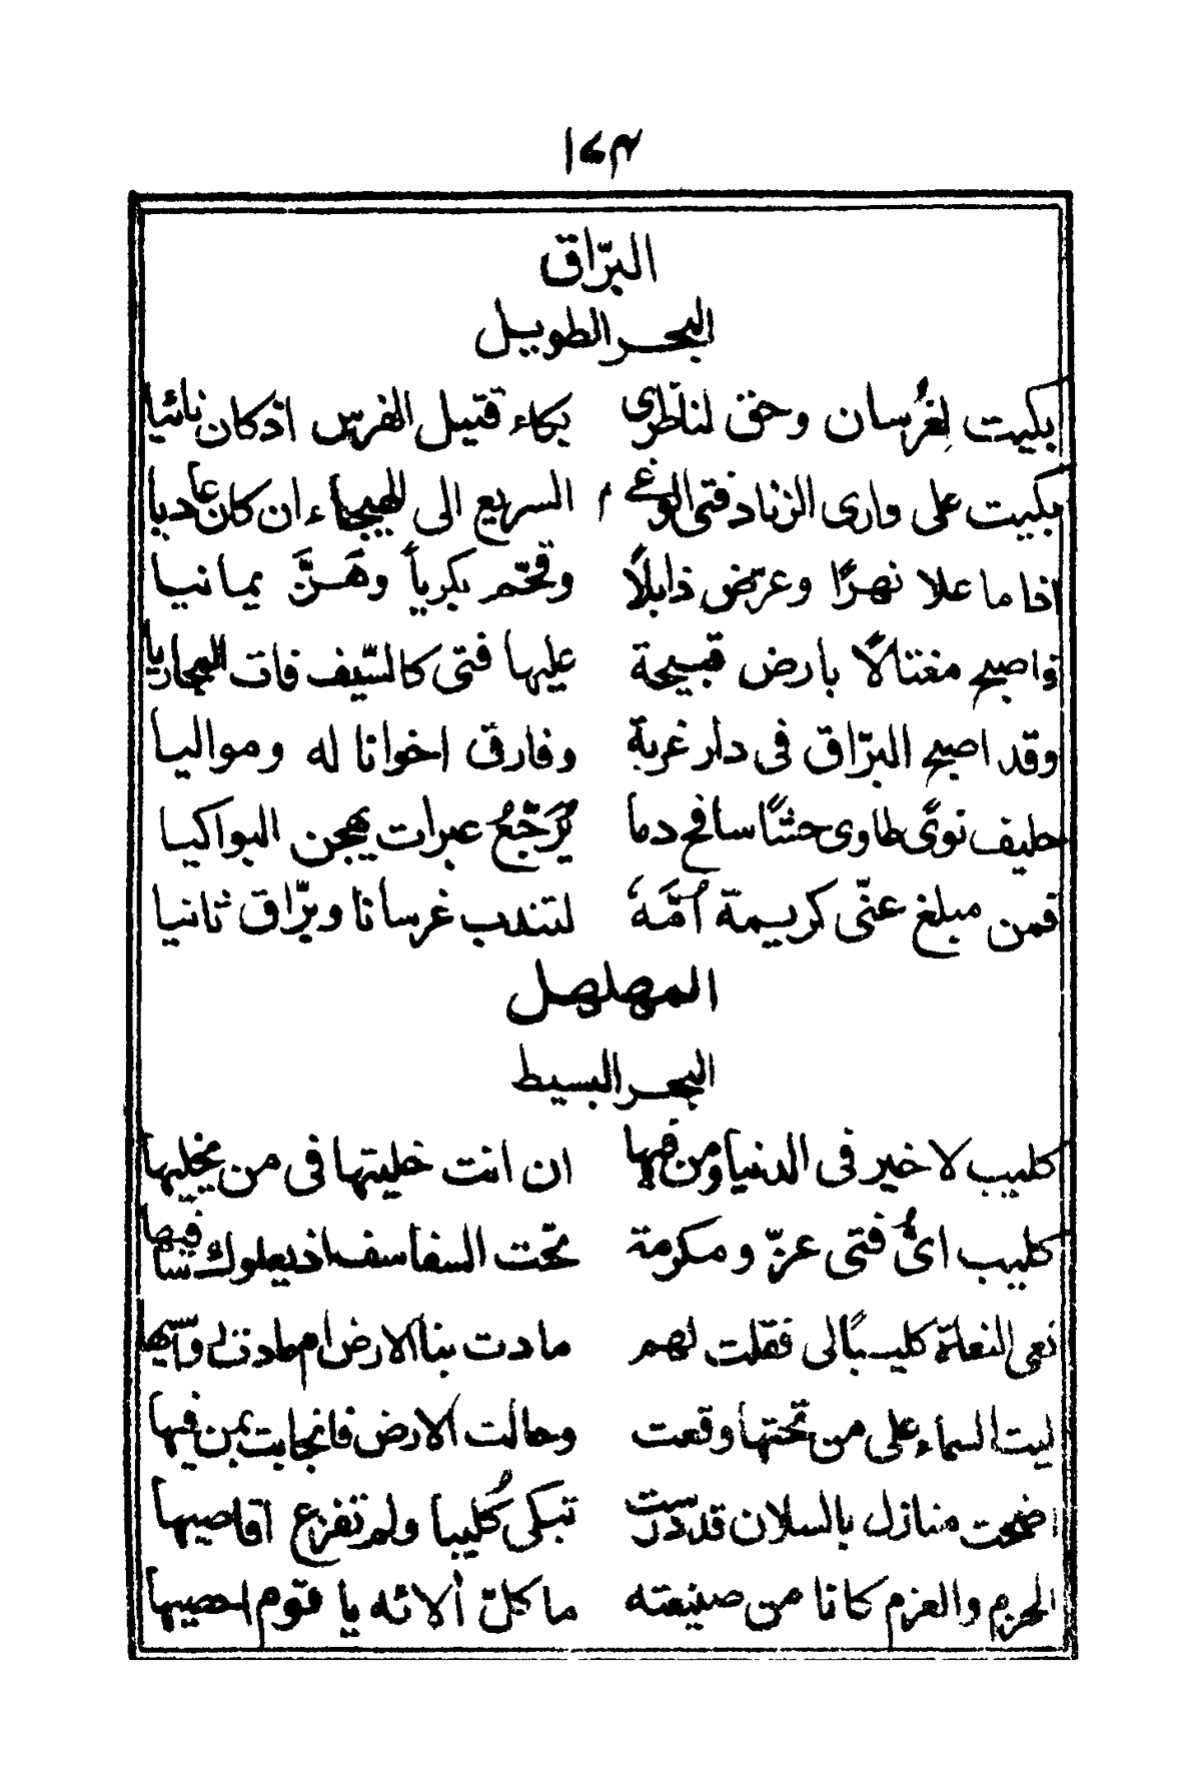 ١٧٣
البرّاق
البحر الطويل
بكيت لغرُسان وحق لناظرى بكاء قتيل الفرس اذ كان نائيا
بكيت على وارى الزناد فتى الوغى م السريع الى الهيجاء ان كان عاديا
اذا ما علا نهرًا وعرّض ذابلًا وقحّم بكرياً وهَزَّ يمانيا
فاصبح مغتالًا بارض قبيحة عليها فتى كالسّيف فات المجاريا
وقد اصبح البرّاق فى دار غربة وفارق اخوانا له ومواليا
حليف نوىً طاوى حشًا سافح دما يُرَجّعُ عبرات يهجن البواكيا
فمن مبلغ عنّى كريمة اُمَّهُ لتندب غرسانا وبرّاق ثانيا
المهلهل
البحر البسيط
كليب لا خير فى الدنيا ومن فيها ان انت خليتها فى من يخليها
كليب اىُّ فتى عزّ ومكرمة تحت السفاسف اذ يعلوك سافيها
نعى النعاة كليبًا لى فقلت لهم مادت بنا الارض ام مادت رواسيها
ليت السماء على من تحتها وقعت وحالت الارض فانجابت بمن فيها
اضحت منازل بالسلان قد درست تبكى كُليبا ولم تفزع اقاصيها
الحزم والعزم كانا من صنيعته ما كلّ ألائه يا قوم احصيها